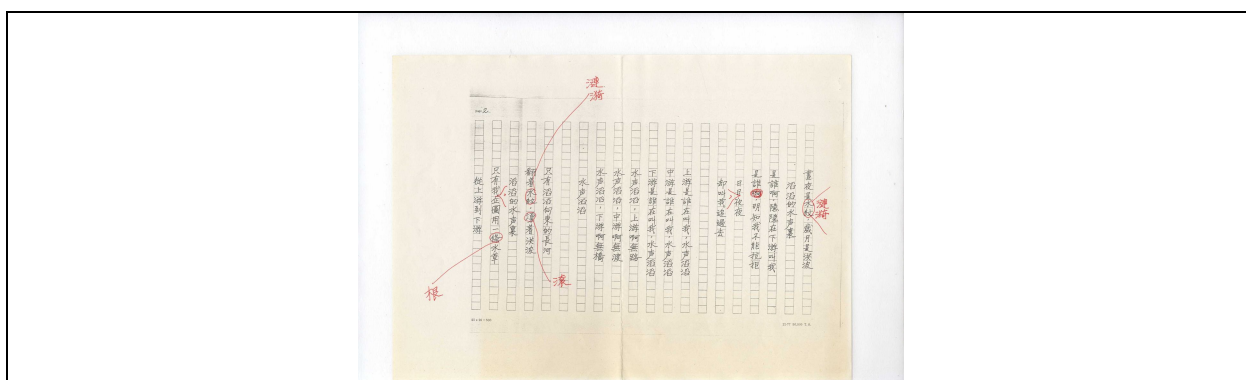 晝夜是水紋，歲月是洪波
漣漪
滔滔的水声裏
是誰啊，隱隱在下游叫我
是誰，明知我不能抗拒
日日夜夜
叫我過去
上游是誰在叫我，水声滔滔
中游是誰在叫我，水声滔滔
下游是誰在叫我，水声滔滔
水声滔滔，上游啊無路
水声滔滔，中游啊無渡
水声滔滔，下游啊無橋
水声滔滔
漣漪
只有滔滔向東的長河
翻着水紋，着洪波
滾
滔滔的水声裏
只有我企圖用一水草
根
從上游到下游
no.2.